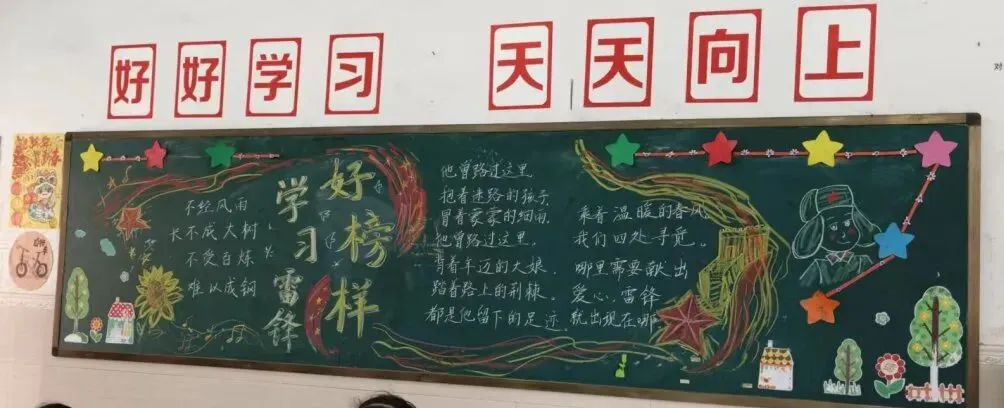 好好学习 天天向上
对
学习雷锋
好榜样
不经风雨
长不成大树
不受百炼
难以成钢
他曾路过这里
抱着迷路的孩子
冒着蒙蒙的细雨
他曾路过这里。
背着年迈的大娘
踏着路上的荆棘。
都是他留下的足迹
乘着温暖的春风
我们四处寻觅。
哪里需要献出
爱心，雷锋
就出现在哪